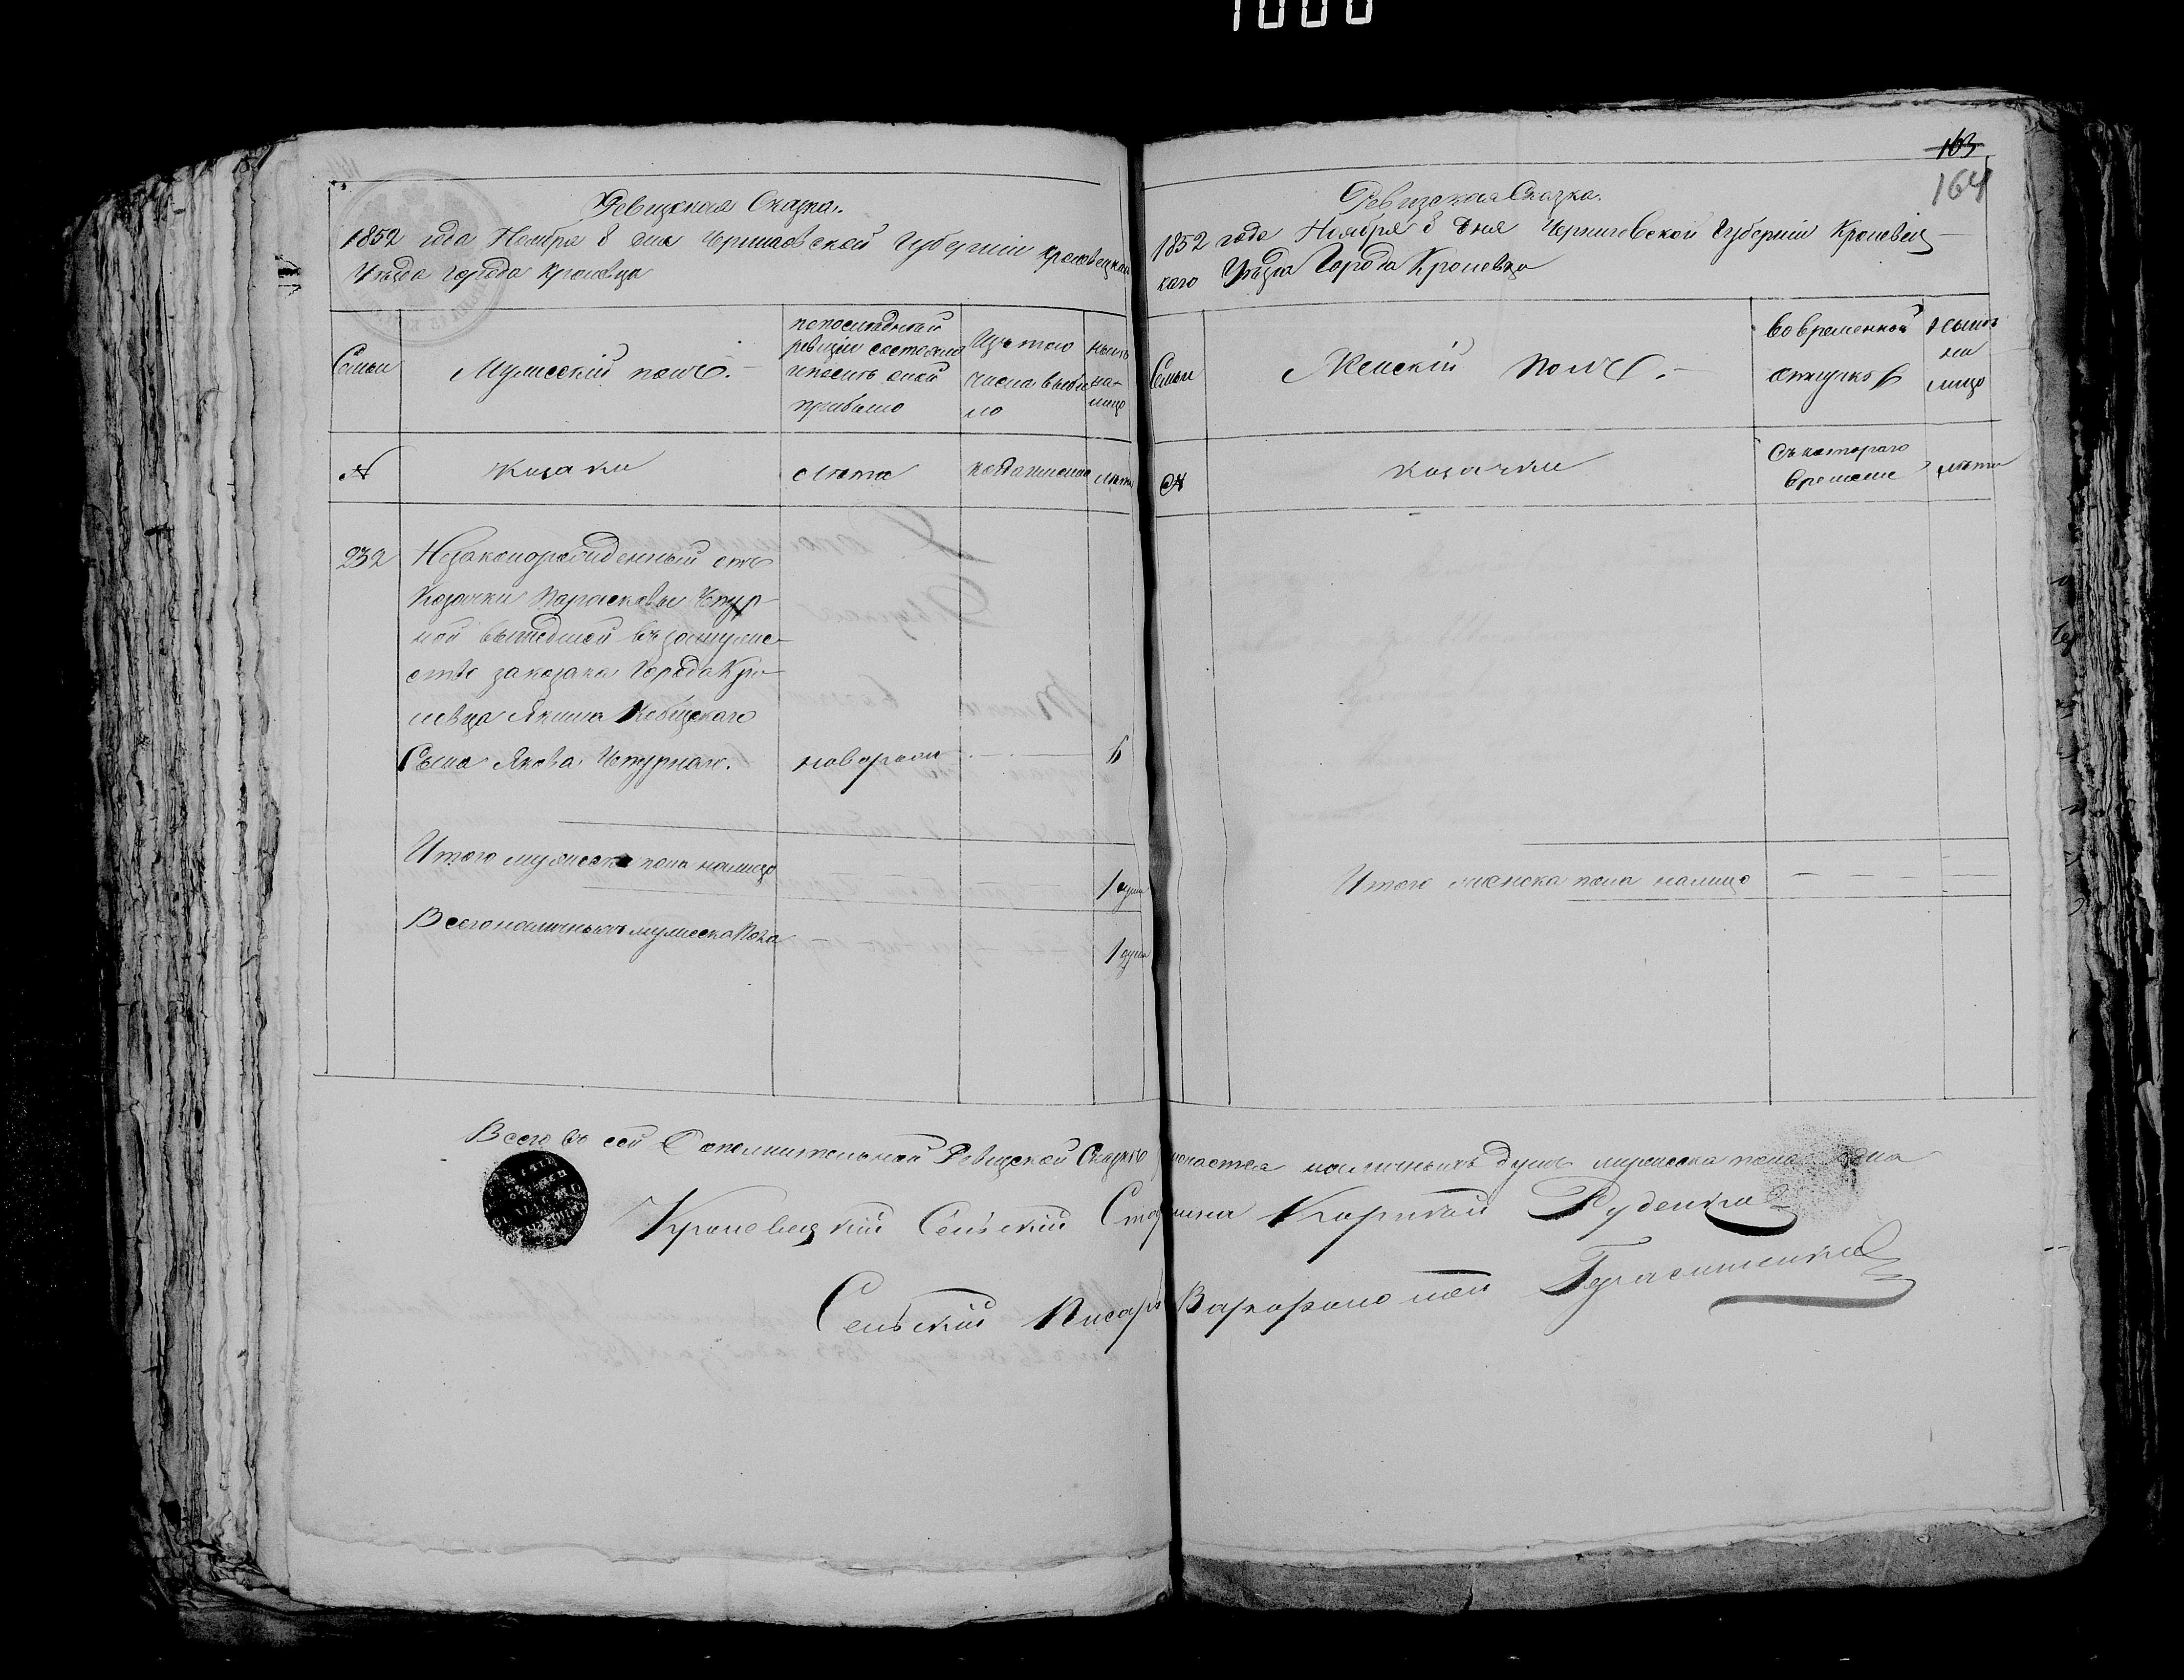 1000
Ревизская Сказка.
1852 года Ноября 8 дня Черниговской Губерніи Кролевецкаго
Уѣзда Города Кролевца
Семьи
Мужескій полъ.
По последней
ревизіи состояло
и послѣ оной
прибыло
Изъ того
числа выбы
ло
Нынѣ
на-
лицо
№
Козаки
Лѣта
когда именно
лѣта
232
Незаконорожденный отъ
Козачки Парасковьи Чепур-
ной вышедшей въ замуже-
ство за козака Города Кро-
левца Якима
Сынъ Яковъ Чепурной.
новорожд
Итого мужеска пола налицо
1 душа
Всего наличныхъ мужеска пола
1 душа
163
164
Ревизская Сказка.
1852 года Ноября 8 дня Черниговской Губерніи Кролевец-
каго Уѣзда Города Кролевца
Семьи
Женскій полъ.
Во временной
отлучкѣ
Нынѣ
на
лицо
№
козачки
Съ котораго
времени
лѣта
Итого женска пола налицо
Всего въ сей Дополнительной Ревизской Сказкѣ наличныхъ душъ мужеска пола одна
Кролевецкій Сельскій Старшина Корнѣй Руденко
Сельскій Писарь Герасименко